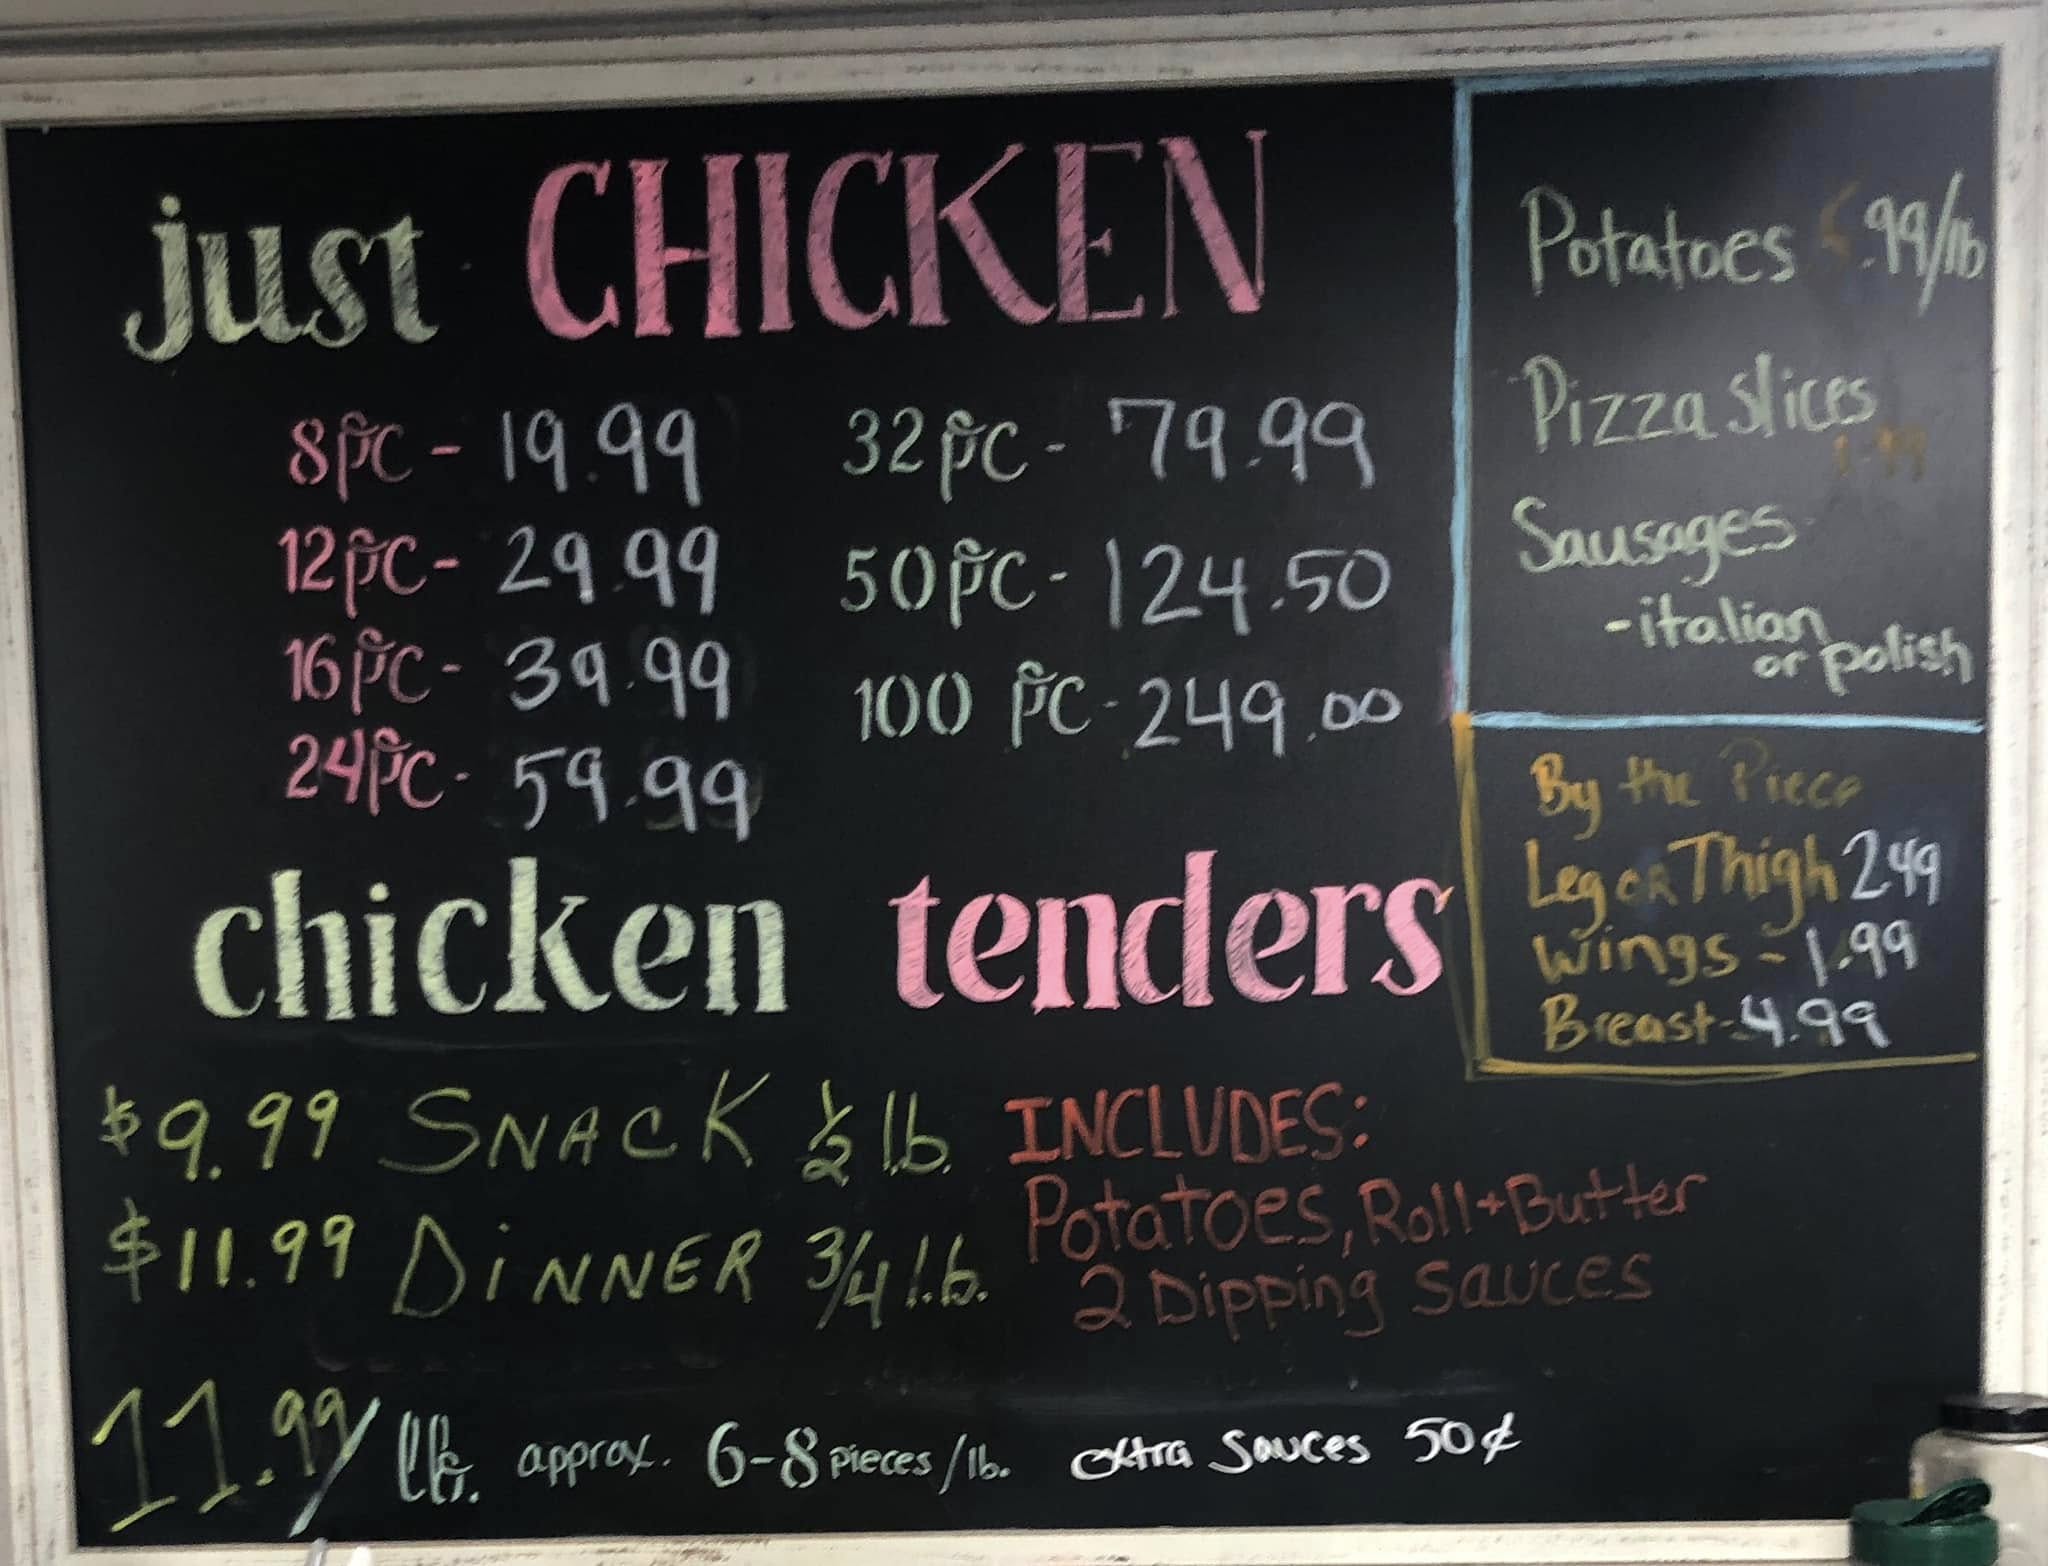 just CHICKEN
8pc - 19.99
12pc - 29.99
16pc - 39.99
24pc - 59.99
32pc - 79.99
50pc - 124.50
100 pc - 249.00
Potatoes .99/lb
Pizza Slices
1.99
Sausages
- italian
or polish
By the Piece
Leg or Thigh 249
Wings - 1.99
Breast - 4.99
chicken tenders
$9.99 SNACK 1/2 lb.
$11.99 DiNNER 3/4 lb.
INCLUDES:
Potatoes, Roll + Butter
2 Dipping Sauces
11.99/lb. approx. 6-8 pieces/lb. extra Sauces 50¢